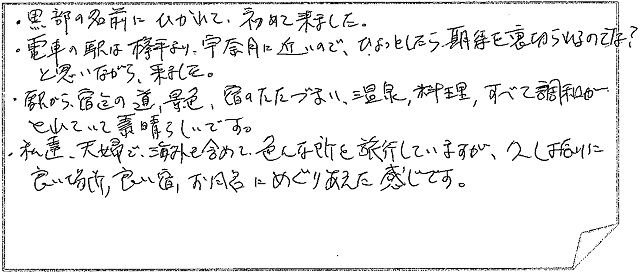 ・黒部の名前にひかれて、初めて来ました。
・電車の駅は欅平より、宇奈月に近いので、ひょっとしたら期待を裏切られるのでは?
と思いながら、来ました。
・駅から、宿迄の道、景色、宿のたたづまい、温泉、料理、すべて調和が
とれていて素晴らしいです。
・私達、夫婦で、海外も含めて、色んな所を旅行していますが、久し振りに
良い場所、良い宿、お風呂にめぐりあえた感じです。